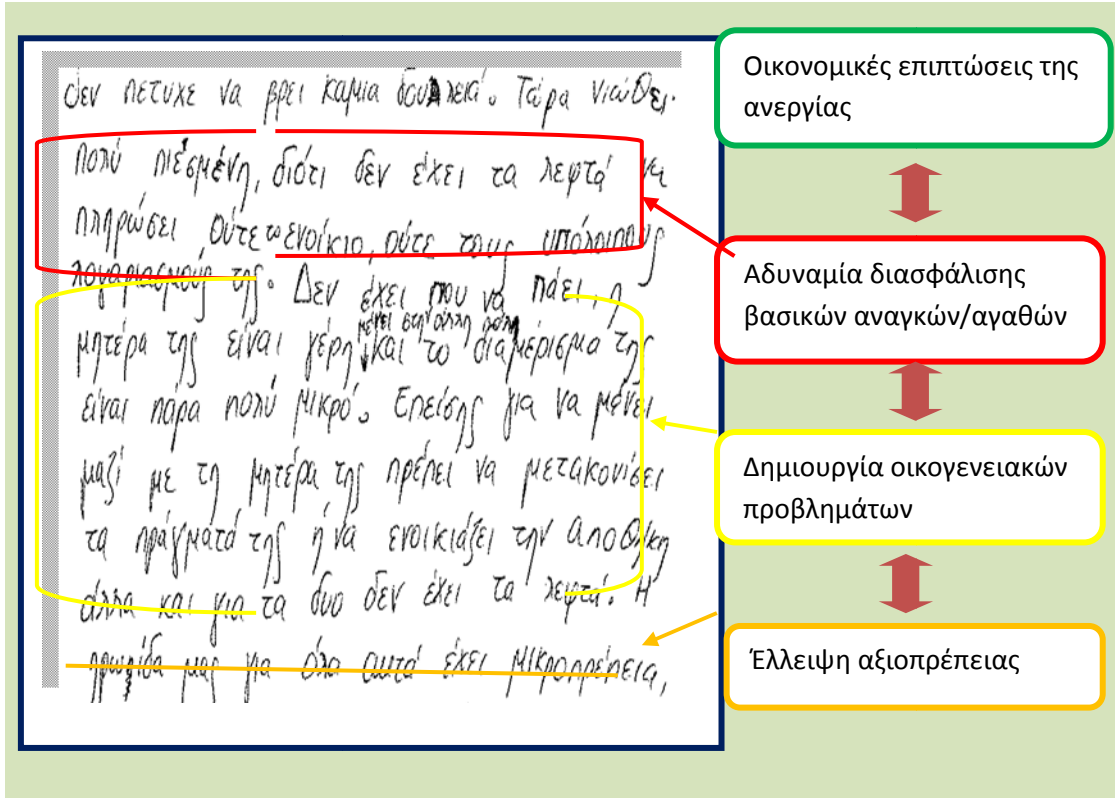 δεν πετυχε να βρει καμια δουλειά. Τώρα νιώθει
πολύ πιεσμένη, διότι δεν έχει τα λεφτά να
πληρώσει ούτε το ενοίκιο, ούτε τους υπόλοιπους
λογαριασμούς της. Δεν έχει που να πάει, η
μένει στη άλλη πόλη
μητέρα της είναι γέρη και το διαμέρισμα της
είναι πάρα πολύ μικρό. Επείσης για να μένει
μαζί με τη μητέρα της πρέπει να μετακονίσει
τα πράγματά της ή να ενοικιάζει την αποθίκη
άλλα και για τα δυο δεν έχει τα λεφτά. Η
ηρωίδα μας για όλα αυτά έχει μικροπρέπεια,
Οικονομικές επιπτώσεις της
ανεργίας
Αδυναμία διασφάλισης
βασικών αναγκών/αγαθών
Δημιουργία οικογενειακών
προβλημάτων
Έλλειψη αξιοπρέπειας